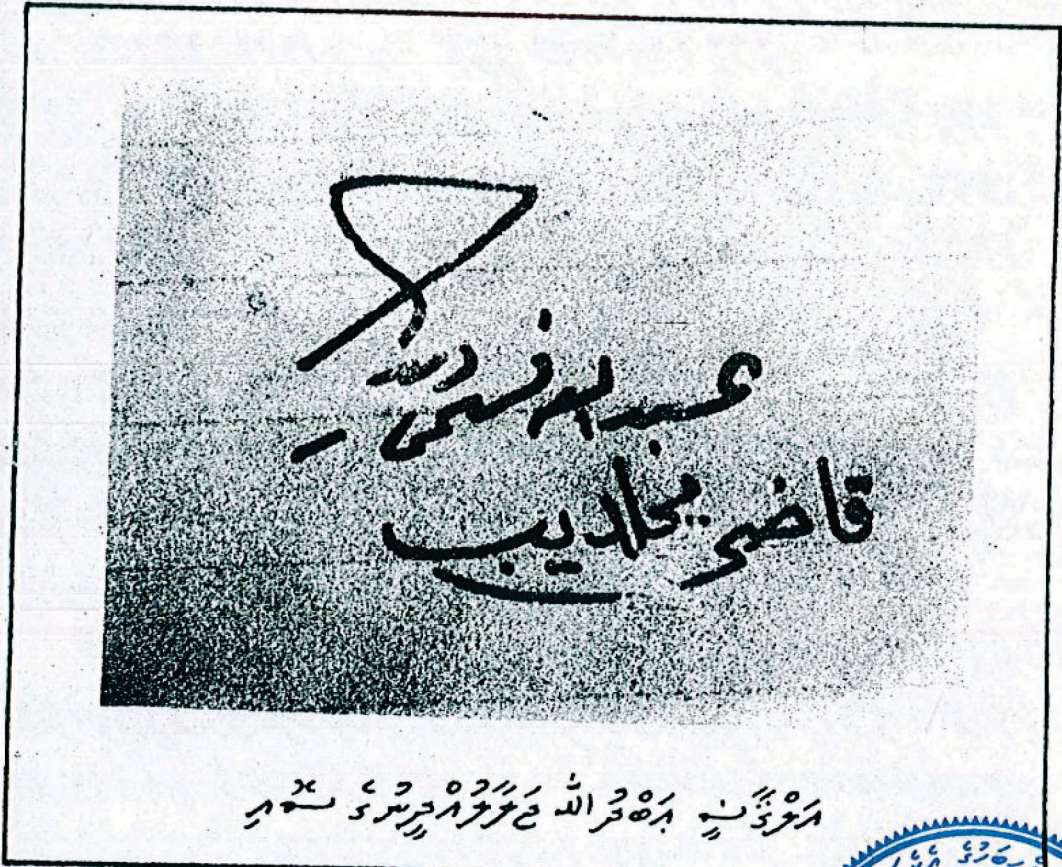 عبدالله فهمى
قاضي محلديب
އަލްޤާޟީ ޢަބްދު الله ޖަލާލުއްދީނުގެ ސޮއި